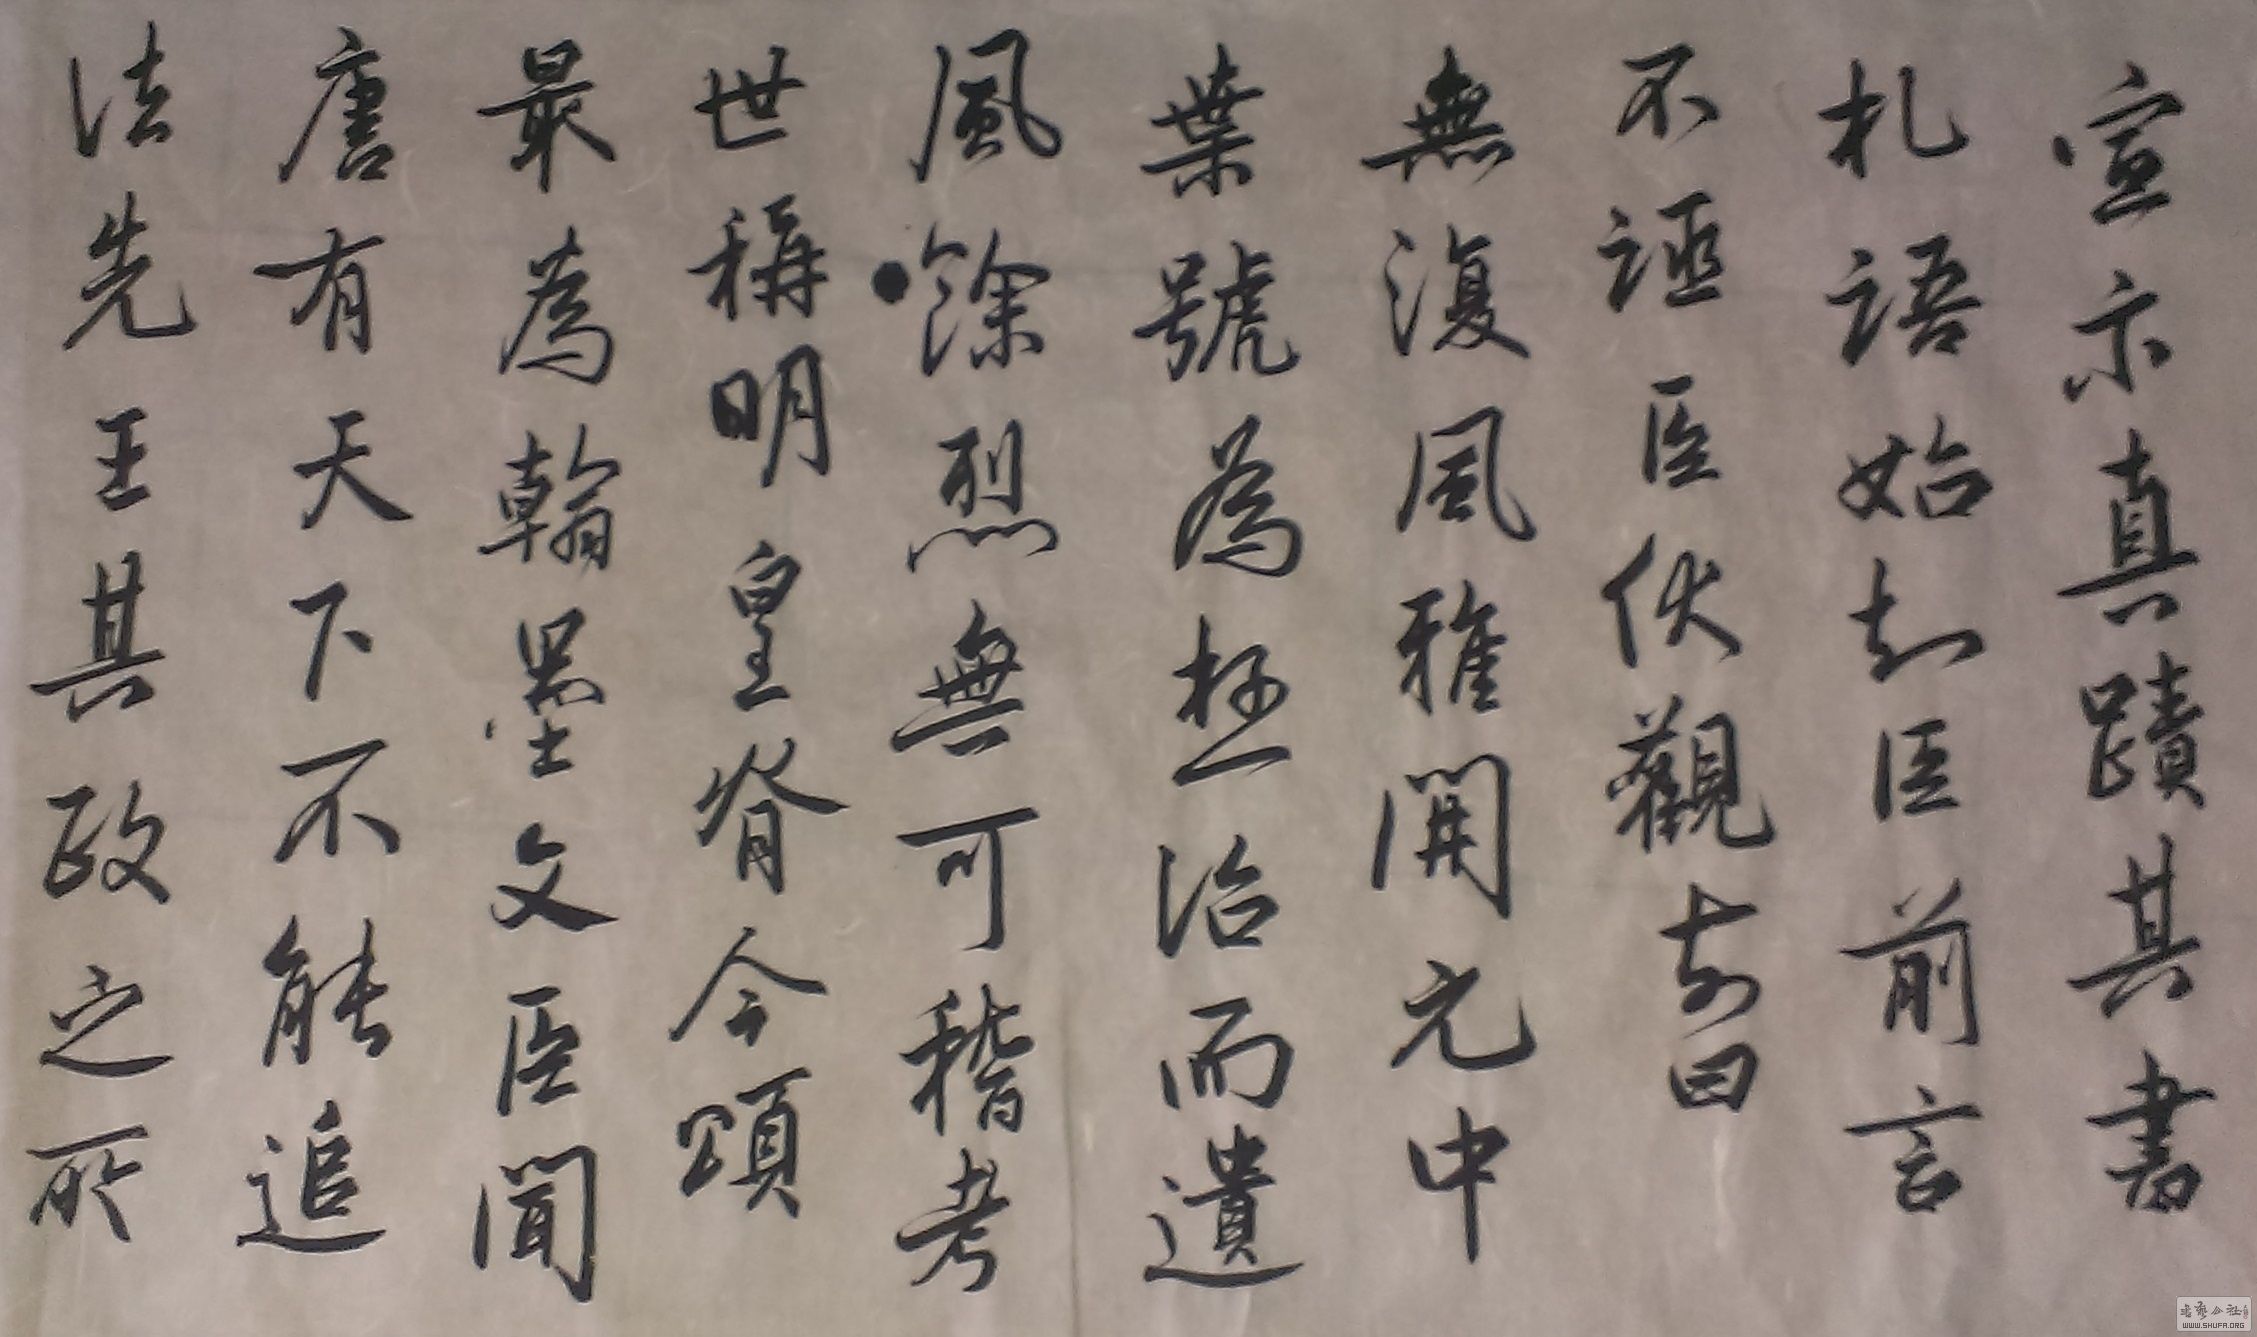 宣示真蹟其書
札語始知臣前言
不誣臣伏觀
無復風雅開元中
葉號為極治而遺
風餘烈無可稽考
世稱明皇脊令頌
最為翰墨文臣聞
唐有天下不能追
法先王其政之所
WWW.SHUFA.ORG